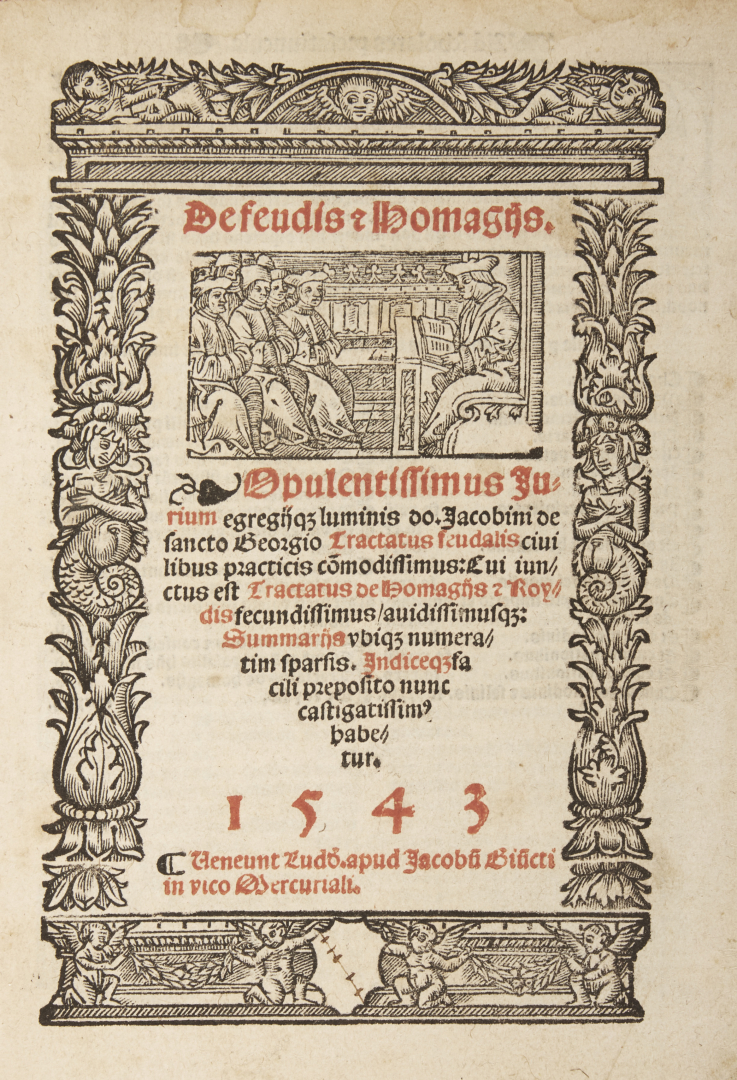 De feudis ⁊ Homagijs.
Opulentissimus Ju⸗
rium egregijqꝫ luminis do. Jacobini de
sancto Georgio Tractatus feudalis ciui
libus practicis cõmodissimus: Cui iun⸗
ctus est Tractatus de Homagijs ⁊ Roy⸗
dis fecundissimus/auidissimusqꝫ:
Summarijs vbiqꝫ numera⸗
tim sparsis. Indiceqꝫ fa
cili preposito nunc
castigatissimꝰ
habe⸗
tur.
1543
¶ Ueneunt Ludõ. apud Jacobũ Giũcti
in vico Mercuriali.